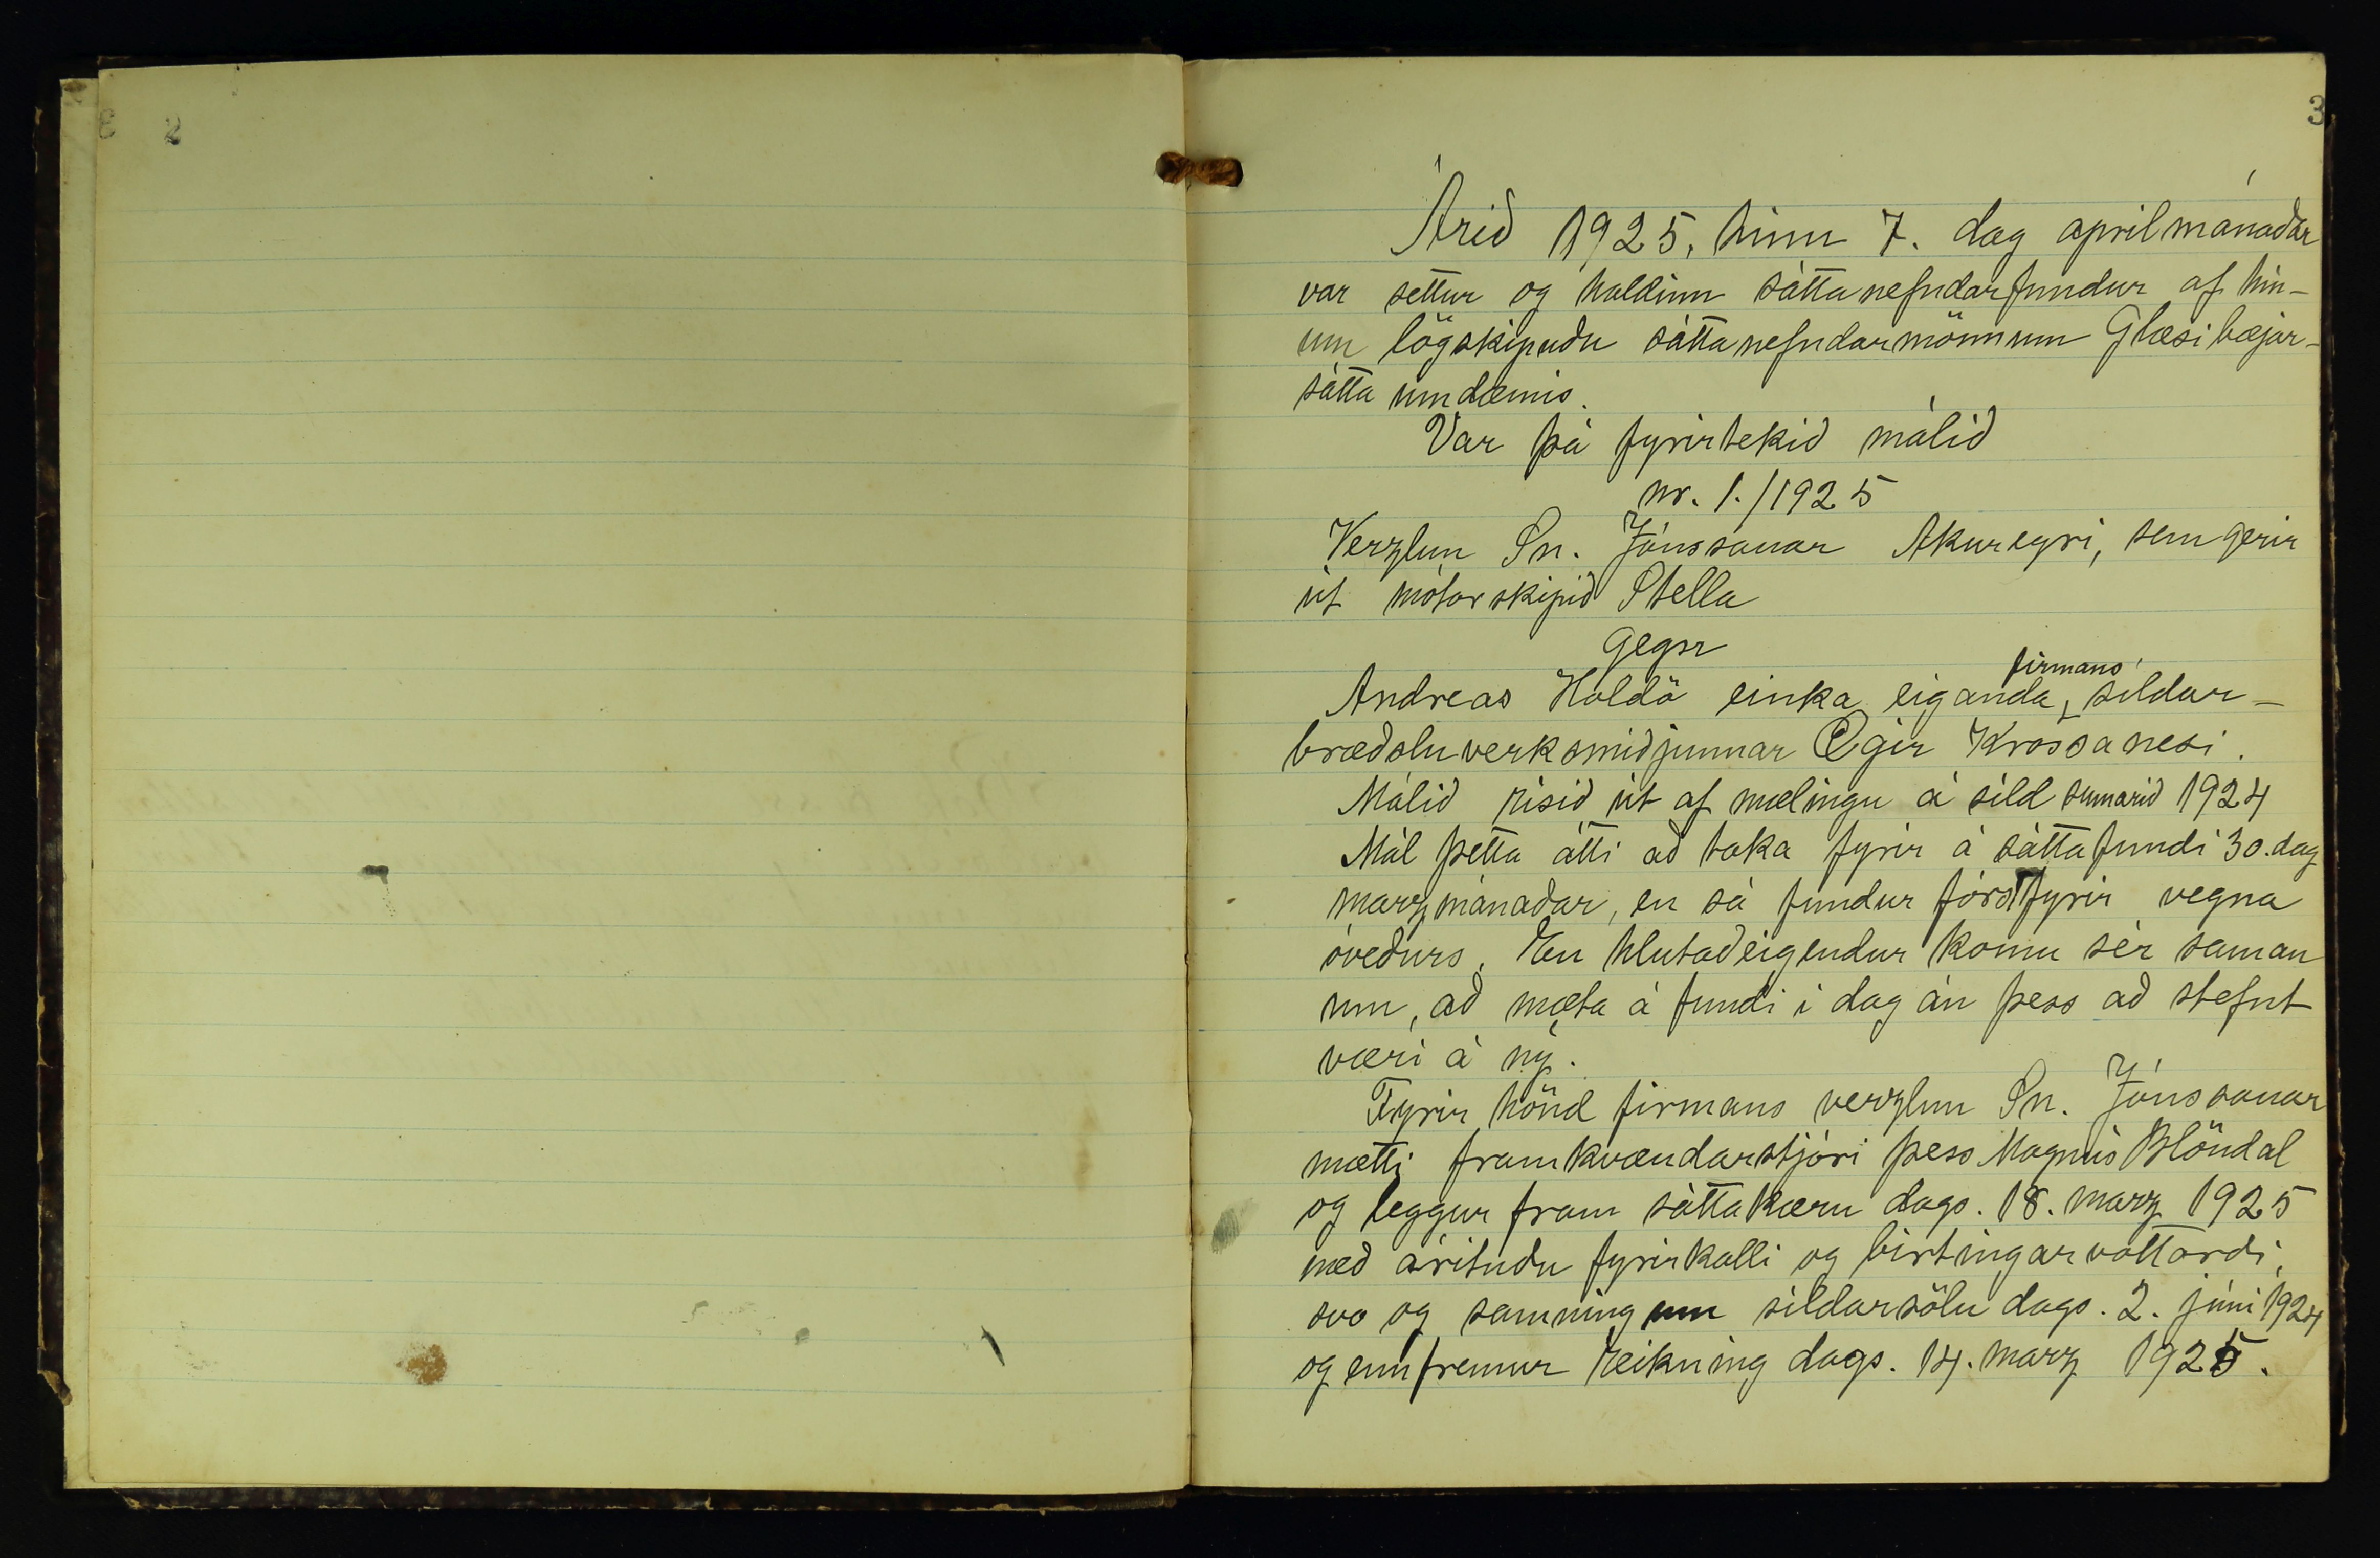 2
3
Árið 1925, hinn 7. dag aprílmánaðar
var settur og haldinn sáttanefndarfundur af hin-
um lögskipuðu sáttanefndarmönnum Glæsibæjar-
sátta umdæmis.
Var þá fyrirtekið málið
nr. 1./1925
Verzlun Sn. Jónssonar Akureyri, sem gerir
út mótorskipið Stella
gegn
Andreas Holdö einka eiganda firmans síldar-
bræðsluverksmiðjunnar Ægir Krossanesi.
Málið risið út af mælingu á síld sumarið 1924
Mál þetta átti að taka fyrir á sáttafundi 30. dag
marzmánaðar, en sá fundur fórst fyrir vegna
óveðurs. En hlutaðeigendur komu sér saman
um, að mæta á fundi í dag án þess að stefnt
væri á ný.
Fyrir hönd firmans verzlun Sn. Jónssonar
mætti framkvændarstjóri þess Magnús Blöndal
og leggur fram sáttakæru dags. 18. marz 1925
með árituðu fyrirkalli og birtingarvottorði,
svo og samning um síldarsölu dags. 2. júní 1924
og ennfremur reikning dags. 14. marz 1925.